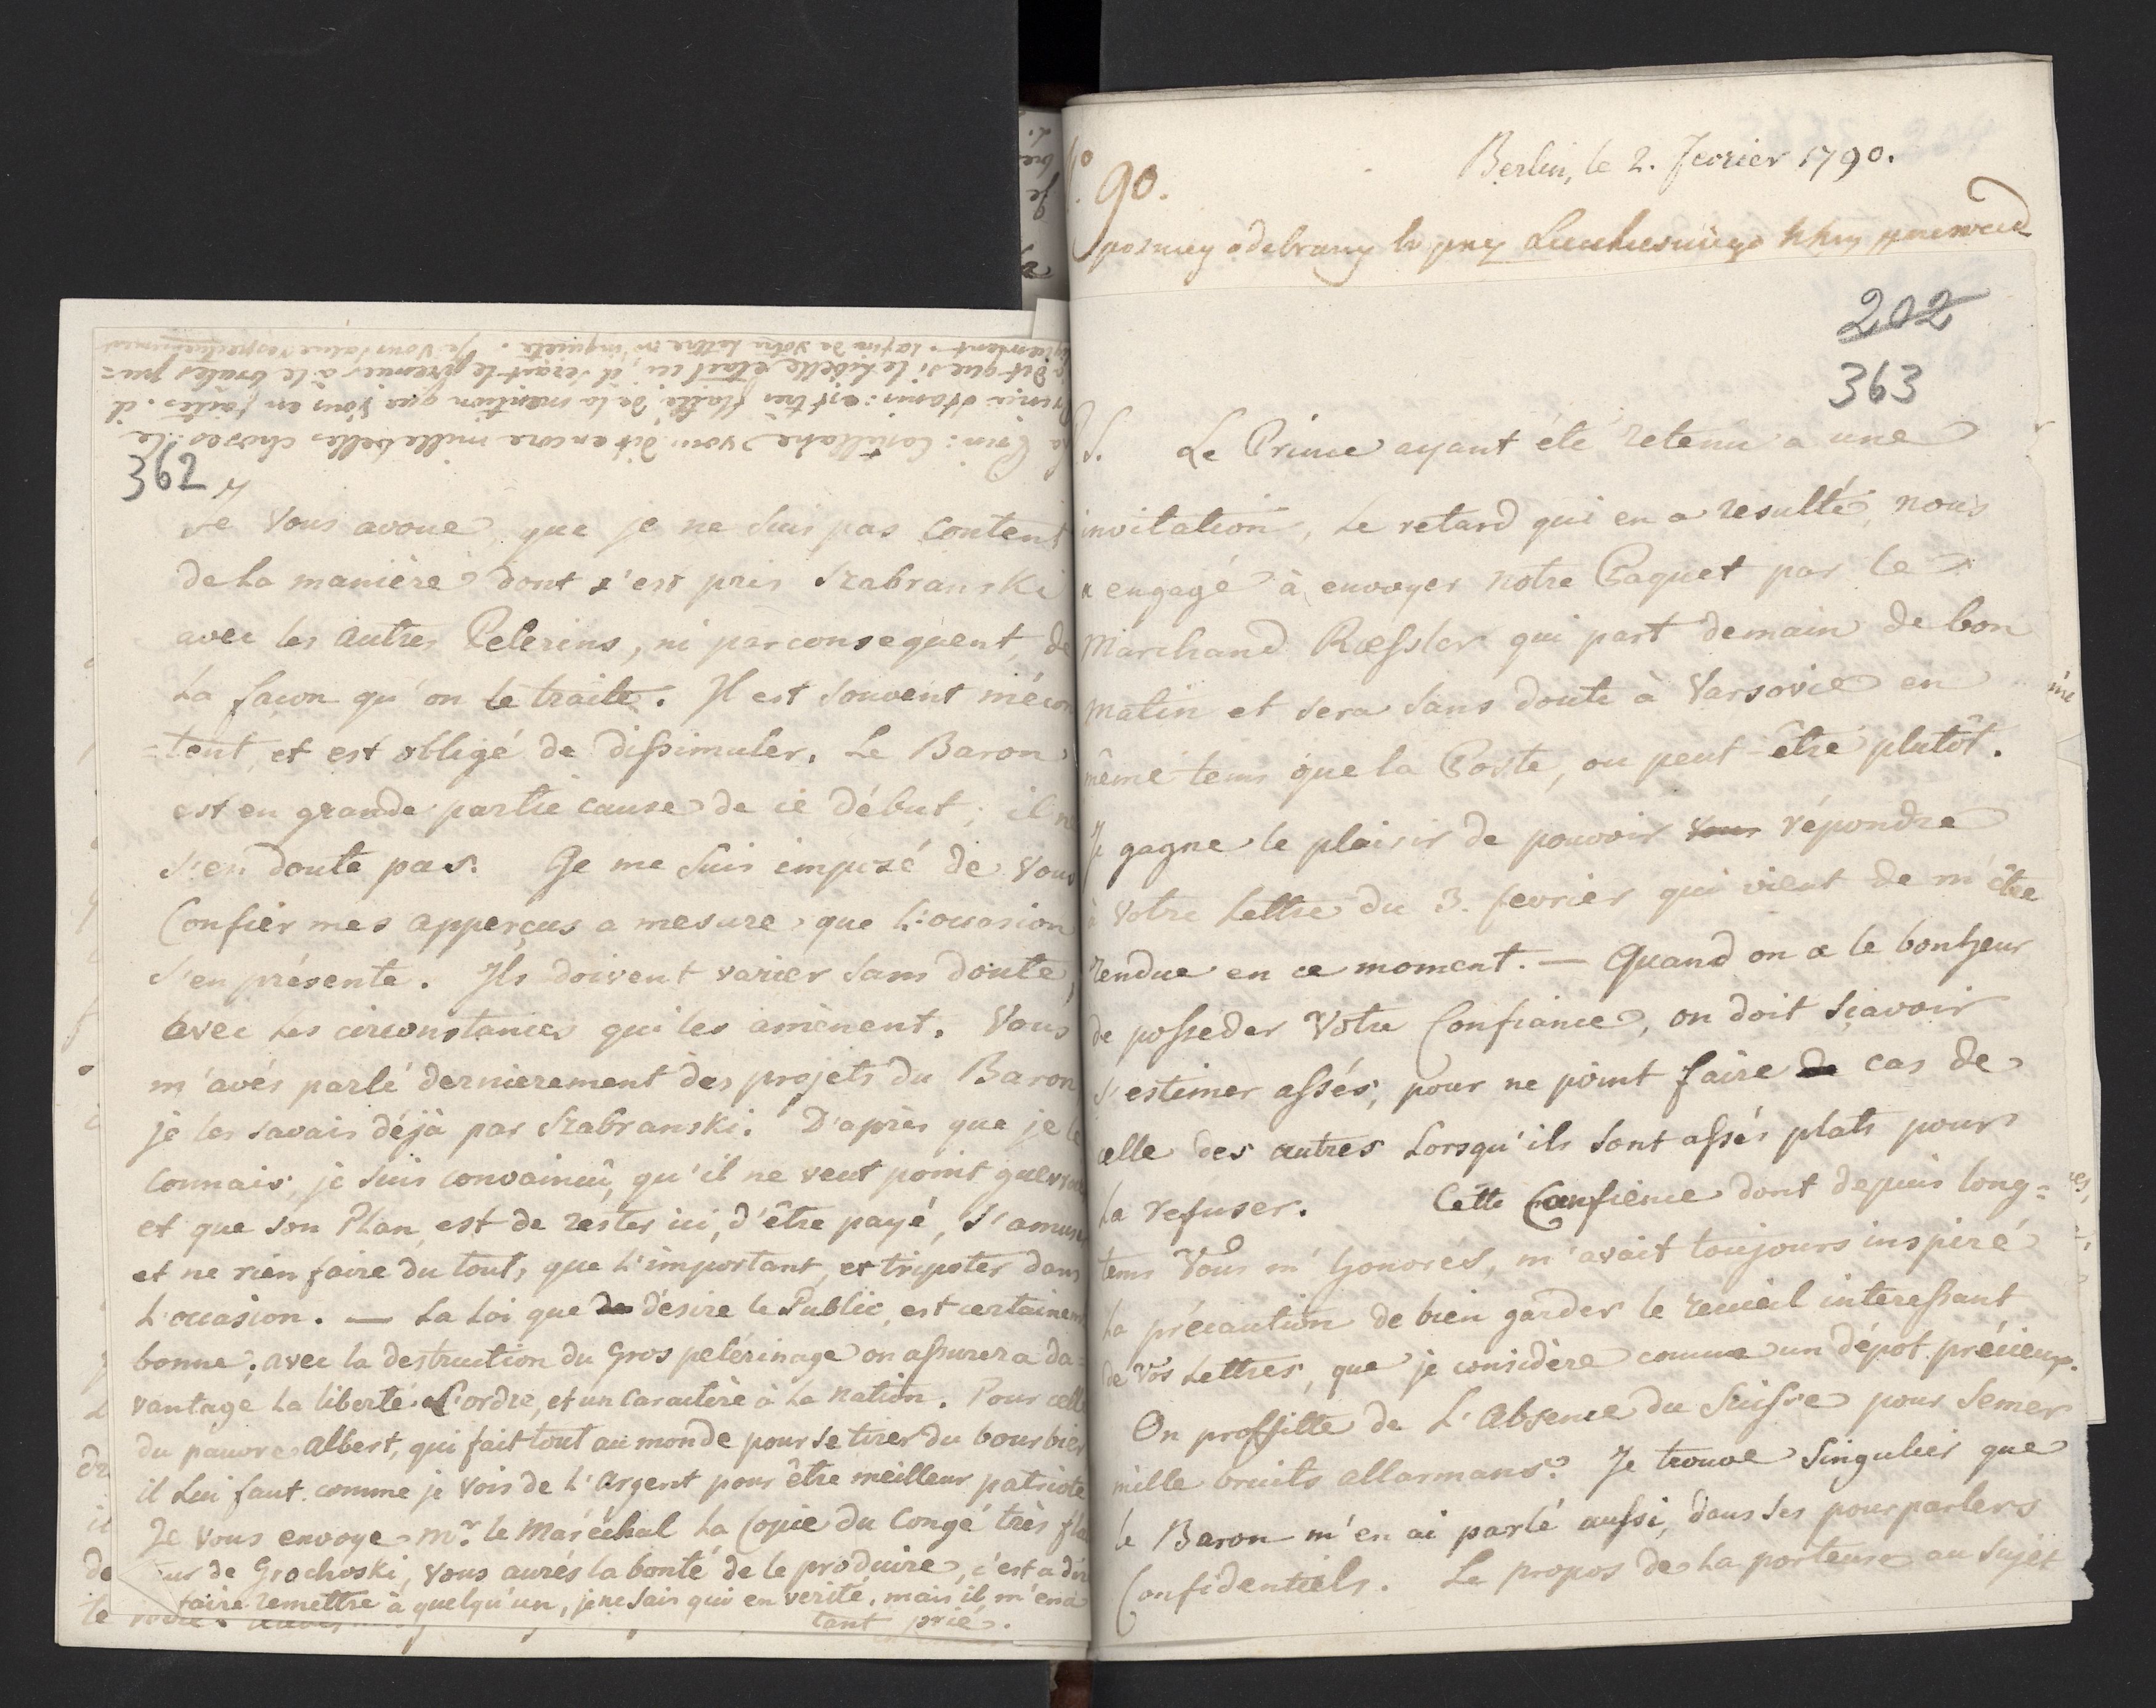 la Prin: Castellane vous dit encore mille belles choses. le
Prince  est très flatté de la mention que vous en faites. il
dit que si le Libelle etait ici, il serait le premier à le bruler pu=
la fin de votre lettre m'inquiete. Je vous salue respectueusement
362
Je Vous avoue, que je ne suis pas Content
de la manière dont s'est pris Szabranski
avec les autres Pelerins, ni par consequent, de
la façon qu'on le traite. Il est souvent mécon
=tent, et est obligé de dissimuler. Le Baron
est en grande partie cause de ce début; il n
s'en doute pas. Je me suis imposé de Vous
Confier mes apperçus a mesure que l'occasion
s'en présente. Ils doivent varier sans doute,
avec les circonstances qui les amènent. Vous
m'avés parlé dernierement des projets du Baron
je les savais déjà par Szabranski. D'après que je le
Connais, je suis convaincû, qu'il ne veut point guerr
et que son Plan, est de rester ici, d'être payé, s'amus
et ne rien faire du tout, que l'important, et tripoter dans
l'occasion. — La Loi que désire le Public, est certainem
bonne; avec la destruction du Gros pelérinage on assurera da=
vantage la liberté, L'ordre, et un Caractère à la Nation. Pour cell
du pauvre Albert, qui fait tout au monde pour se tirer du bourbier
il Lui faut comme je vois de l'Argent pour être meilleur patriote
Je vous envoye Mr. le Maréchal La Copie du Congé très fla
de Grochoski, vous aurés la bonté de le produire, c'est a dir
faire remettre à quelqu'un, je ne sais qui en verité, mais il m'en a
tant prié.
No 90.
Berlin, le 2. Fevrier 1790.
odebrany
202
363
P.S. Le Prince ayant été retenu a une
invitation, Le retard qui en a resulté, nous
a engagé à envoyer notre Paquet par le
Marchand Ræssler qui part demain de bon
matin et sera sans doute à Varsovie en
même tems que la Poste, ou peut-être plutôt.
Je gagne le plaisir de pouvoir vous répondre
à votre Lettre du 3. fevrier qui vient de m'être
rendue en ce moment. — Quand on a le bonheur
de posseder Votre Confiance, on doit sçavoir
s'estimer assés, pour ne point faire de cas de
celle des autres Lorsqu'ils sont assés plats pour
La refuser. Cette Confience dont depuis long=
tems Vous m'honorés, m'avait toujours inspiré
la précaution de bien garder le recueil interessant
de Vos Lettres, que je considère comme un dépot précieux.
On proffitte de L'Absence du Suisse pour Semer
mille bruits allarmans. Je trouve Singulier que
le Baron m'en ai parlé aussi, dans ses pourparlers
Confidentiels. Le propos de la porteuse au Sujet